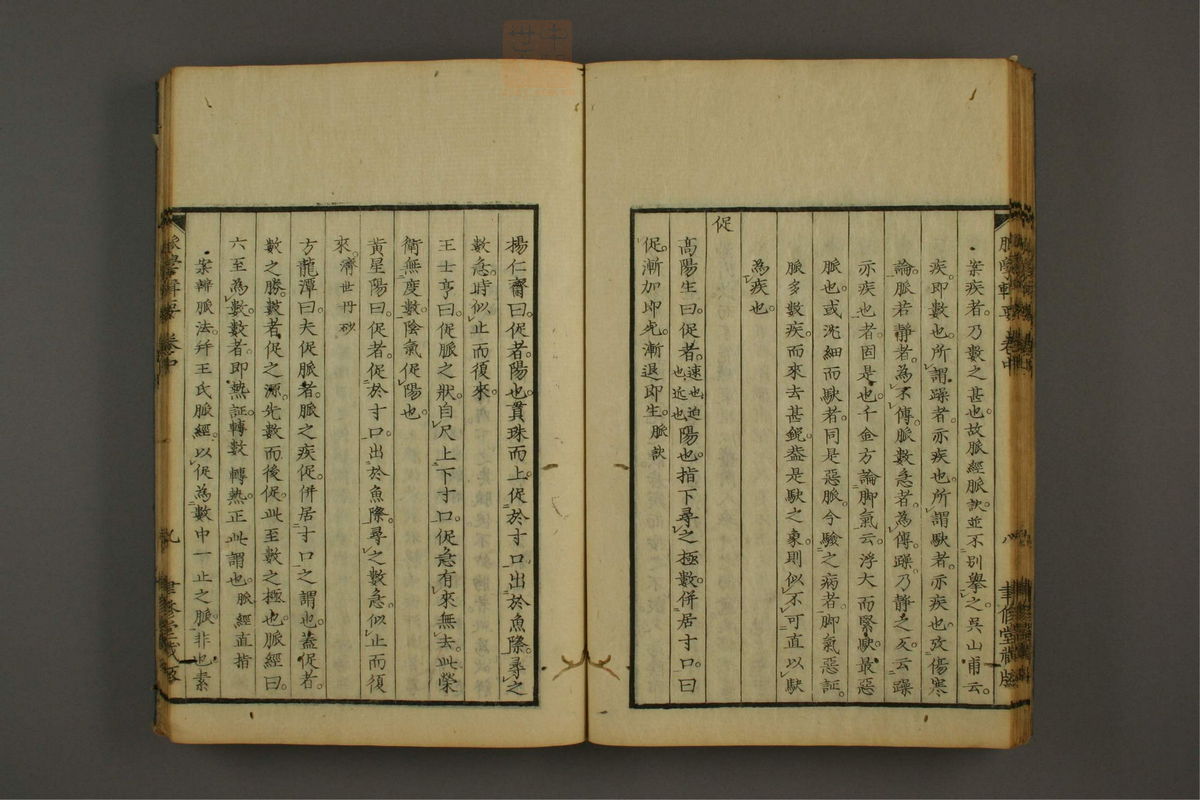 脈學輯要 卷中 八 聿修堂藏版
案疾者乃數之甚也故脈經脈訣並不別舉之吳山甫云
疾即數也所謂躁者亦疾也所謂駃者亦疾也攷傷寒
論脈若靜者為不傳脈數急者為傳躁乃靜之反云躁
亦疾也者固是也千金方論脚氣云浮大而緊駃最惡
脈也或沈細而駃者同是惡脈今驗之病者脚氣惡証
脈多數疾而來去甚銳葢是駃之象則似不可直以駃
為疾也
促
高陽生曰促者速也迫也近也陽也指下尋之極數併居寸口曰
促漸加即死漸退即生脈訣
楊仁齋曰促者陽也貫珠而上促於寸口出於魚際尋之
數急時似止而復來
王士亨曰促脈之狀自尺上下寸口促急有來無去此榮
衛無度數陰氣促陽也
黃星陽曰促者促於寸口出於魚際尋之數急似止而復
來濟世丹砂
方龍潭曰夫促脈者脈之疾促併居寸口之謂也蓋促者
數之勝數者促之源先數而後促此至數之極也脈經曰
六至為數數者即熱証轉數轉熱正此謂也脈經直指
案辨脈法并王氏脈經以促為數中一止之脈非也素
脈學輯要 卷中 九 聿修堂藏版